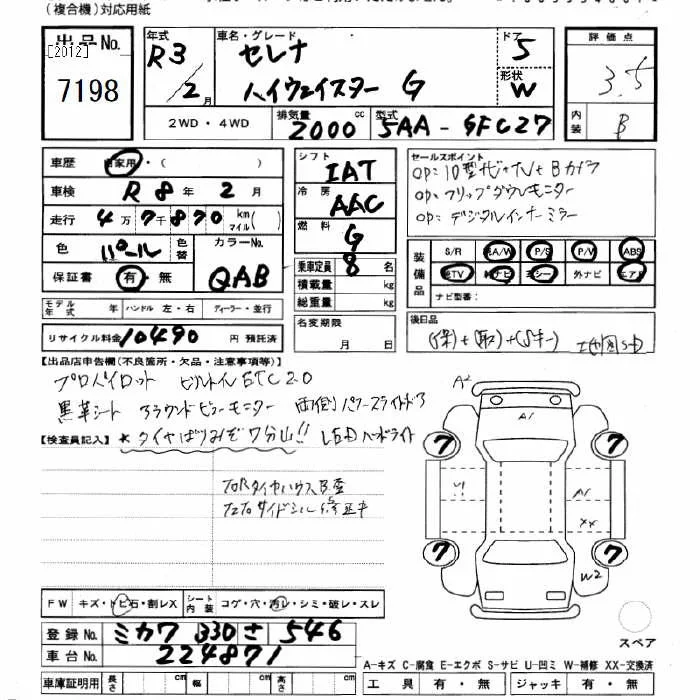 (複合機)対応用紙
出品No.
[2012]
7198
年式 R3/2月
車名・グレード セレナ ハイウェイスター G
ドア 5
形状 W
2WD・4WD
排気量 2000 cc
型式 5AA-GFC27
評価点 3.5
内装 B
車歴 自家用・( )
車検 R8年2月
走行 4万7千870 km マイル( )
色 パール 色替
カラーNo. QAB
保証書 有・無
モデル年式 年 ハンドル 左・右 ディーラー・並行
リサイクル料金 10490 円 預託済
シフト IAT
冷房 AAC
燃料 G
乗車定員 8 名
積載量 kg
総重量 kg
名変期限 月 日
セールスポイント
OP:10型ナビ+TV+Bカメラ
OP:フリップダウンモニター
OP:デジタルインナーミラー
装備品 S/R A/W P/S P/W ABS
TV ナビ 革シート 外ナビ エアB
ナビ型番:
後日品
(保)+(取)+(Sキー)
【出品店申告欄(不良箇所・欠品・注意事項等)】
プロパイロット ビルトインETC2.0
黒革シート アラウンドビューモニター 両側パワースライドドア
【検査員記入】 ★タイヤばりみぞ7分山!! LEDヘッドライト
A2 A1
7 7
A1
XX
7 7
W2
スペア
FW キズ・トビ石・割レX
シート内装 コゲ・穴・汚レ・シミ・破レ・スレ
登録No. ミカワ 330 さ 546
車台No. 224871
A-キズ C-腐食 E-エクボ S-サビ U-凹ミ W-補修 XX-交換済
車庫証明用 長さ cm 幅 cm 高さ cm
工具 有・無 ジャッキ 有・無